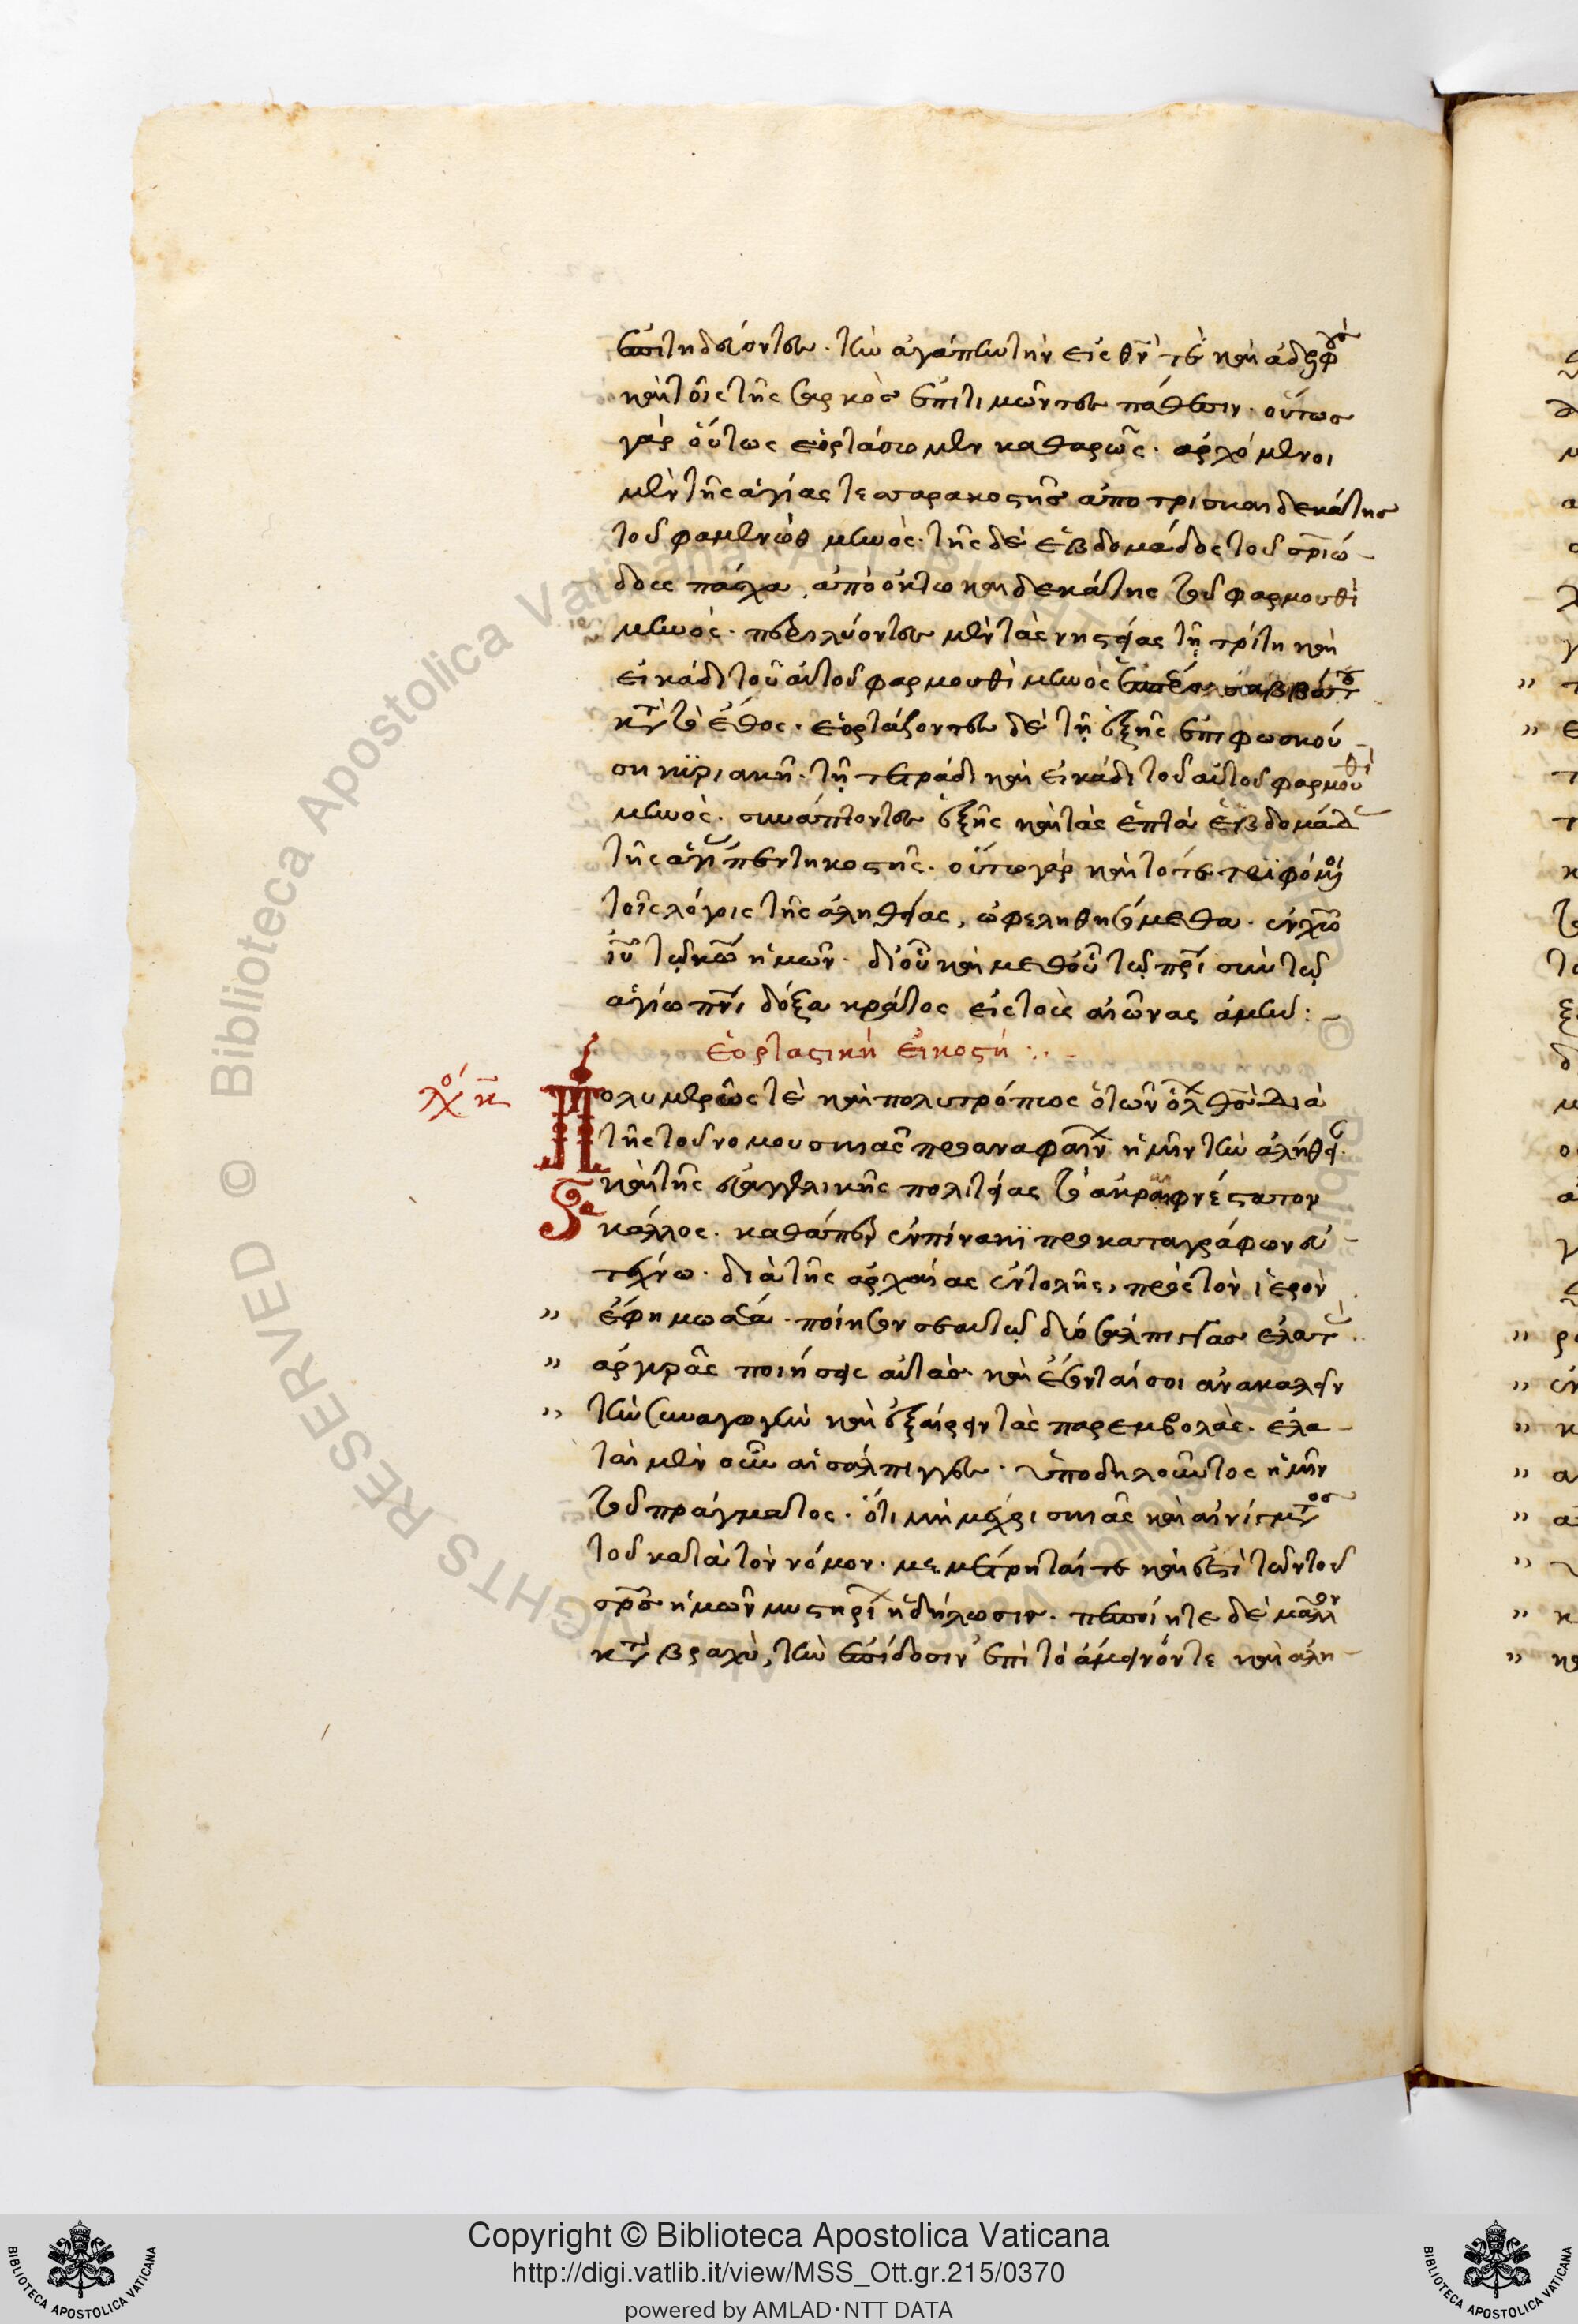 ἐπιτηδεύοντες. τὴν ἀγάπην τὴν εἰς θν τὲ καὶ ἀδελφοὺς
καὶ τοῖς τῆς σαρκὸς ἐπιτιμῶντες πάθεσιν. οὕτως
γὰρ οὕτως ἑορτάσωμεν καθαρῶς. ἀρχόμενοι
μὲν τῆς ἁγίας τεσσαρακοστῆς ἀπο τρισκαιδεκάτης
τοῦ φαμενὼθ μηνὸς. τῆς δὲ ἑβδομάδος τοῦ σριώ
δους πάσχα, ἀπὸ ὀκτωκαιδεκάτης τοῦ φαρμουθὶ
μηνὸς. περιλύοντες μὲν τὰς νηστείας τῇ τρίτη καὶ
εἰκάδι τοῦ αὐτοῦ φαρμουθὶ μηνὸς ἑσπέρα σαββάτου
κατὰ τὸ ἔθος. ἑορτάζοντες δὲ τῇ ἑξῆς ἐπιφωσκού
ση κυριακῆ. τῇ τετράδι καὶ εἰκάδι τοῦ αὐτοῦ φαρμουθὶ
μηνὸς. συνάπτοντες ἑξῆς καὶ τὰς ἑπτὰ ἑβδομάδας
τῆς ἁγίας πεντηκοστῆς. οὕτω γὰρ καὶ τότε
τοῖς λόγοις τῆς ἀληθείας, ὠφεληθησόμεθα. ἐν χῶ
ιῦ τῷ κῶ ἡμῶν. δι' οὗ καὶ μεθ' οὗ τῷ πρὶ σὺν τῷ
ἁγίω πνι δόξα κράτος εἰς τοὺς αἰῶνας ἀμὴν:
ἑορταστικὴ εἰκοστὴ
λόγ κ
Πολυμερῶς τὲ καὶ πολυτρόπως ὁ τῶν ὅλων θσ διὰ
τῆς τοῦ νομου σκιᾶς προαναφαίνει ἡμῖν τὴν ἀλήθειαν
καὶ τῆς εὐαγγελικῆς πολιτείας τὸ ἀκραιφνέστατον
κάλλος. καθάπερ ἐν πίνακι προκαταγράφων εὐ
τέχνω. διὰ τῆς ἀρχαίας ἐντολῆς, πρὸς τὸν ἱερὸν
" ἔφη μωσέα. ποίησον σεαυτῷ δύο σάλπιγγας ἐλατὰς
" ἀργυρᾶς ποιήσεις αὐτὰς καὶ ἔσονται σοι ἀνακαλεῖν
" τὴν συναγωγὴν καὶ ἐξαίρειν τὰς παρεμβολὰς. ἐλα
ταὶ μὲν οὖν αἱ σάλπιγγες. ὑποδηλοῦντος ἡμῖν
τοῦ πράγματος. ὅτι μὴ μέχρι σκιᾶς καὶ αἰνίγματος
τοῦ κατὰ τὸν νόμον. μεμέτρηταί τε καὶ ἐστὶ τῶν τοῦ
σρσ ἡμῶν μυστηρίων ἡ δήλωσις. πεποίηται δὲ μᾶλλον
κατὰ βραχὺ, τὴν ἐπίδοσιν ἐπὶ τὸ ἄμεινόν τε καὶ ἀλη